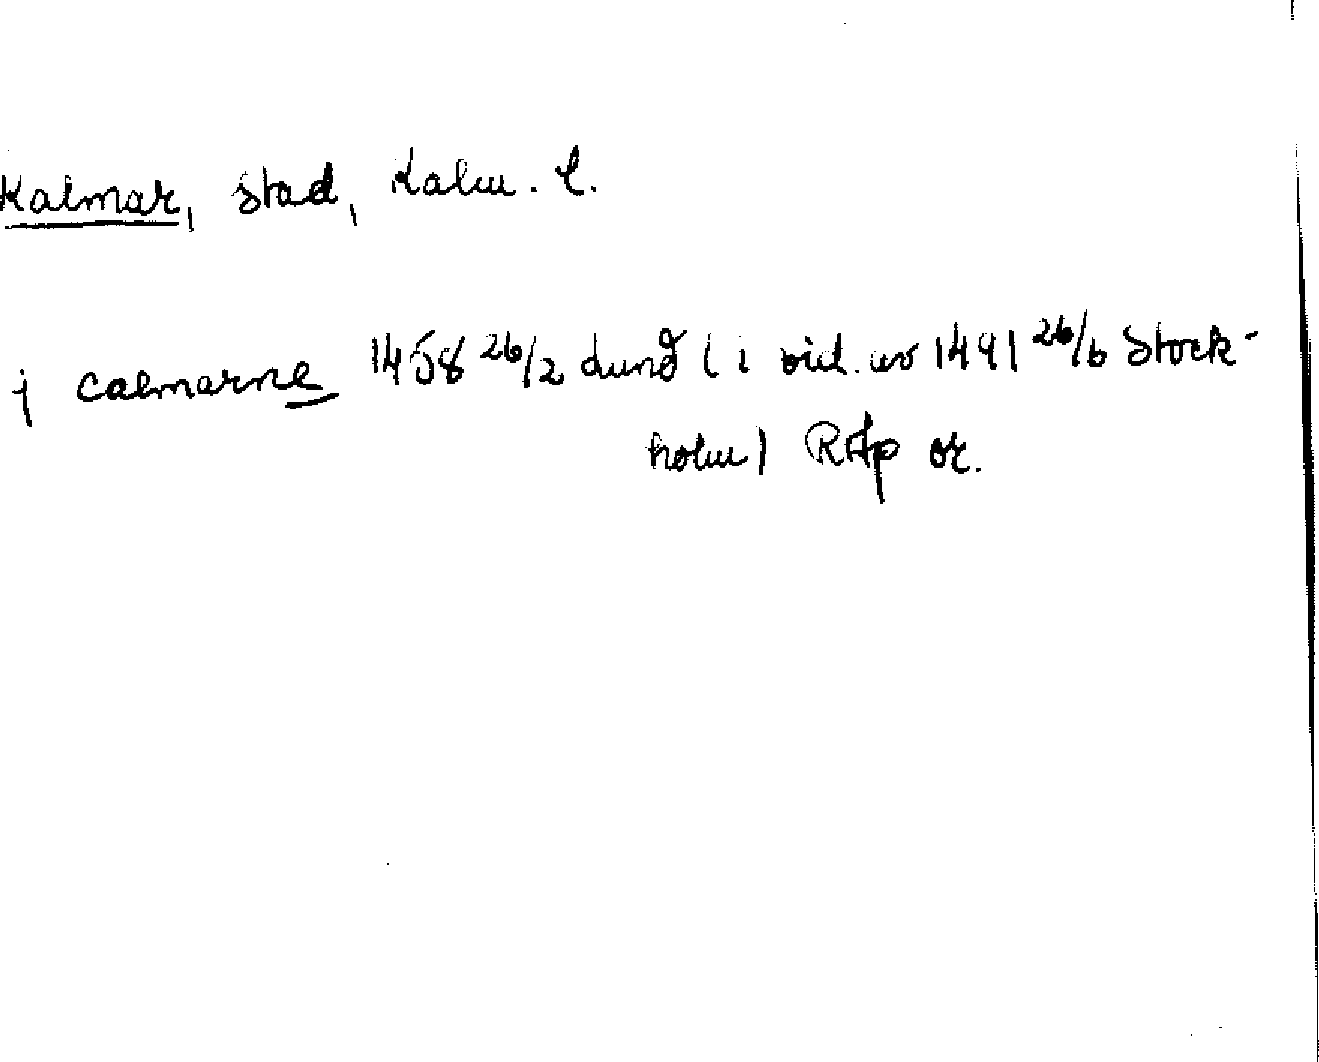 Kalmar, stad, Kalm. l.
j calmarne 1458 26/2 Lund ( i vid. av 1491 26/6 Stock-
holm) RAp or.